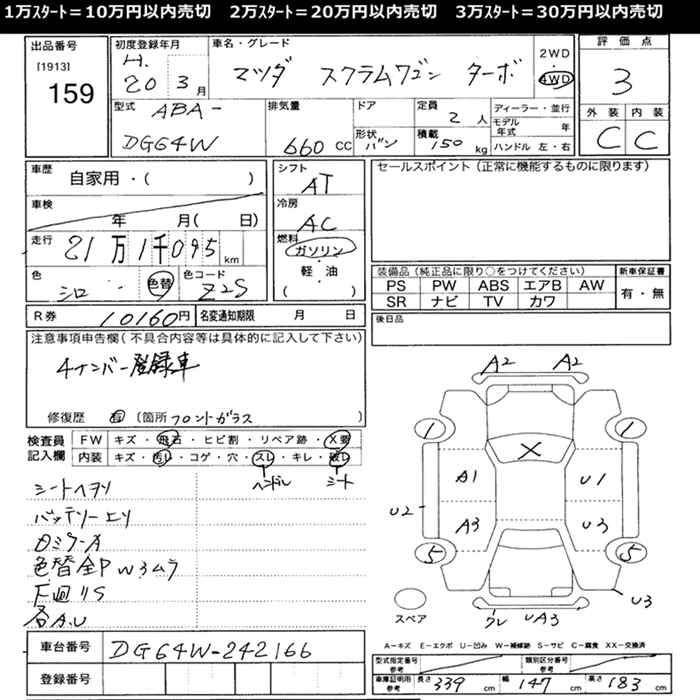 1万スタート＝10万円以内売切　2万スタート＝20万円以内売切　3万スタート＝30万円以内売切
出品番号
[1913]
159
初度登録年月
H.
20 3月
車名・グレード
マツダ スクラムワゴン ターボ
2WD
4WD
評価点
3
外装 内装
C C
型式 ABA-
DG64W
排気量
660 CC
ドア
形状
バン
定員
2人
積載
150 kg
ディーラー・並行
モデル年式 年
ハンドル 左・右
車歴
自家用・( )
車検
年 月( 日)
走行
21万1千095 km
色
シロ
色替
色コード
Z2S
シフト
AT
冷房
AC
燃料
ガソリン
軽油
( )
セールスポイント (正常に機能するものに限ります)
装備品 (純正品に限り○をつけてください)
PS PW ABS エアB AW
SR ナビ TV カワ
新車保証書
有・無
R券 10160円
名変通知期限 月 日
後日品
注意事項申告欄 (不具合内容等は具体的に記入して下さい)
4ナンバー登録車
修復歴 (箇所 フロントガラス
検査員記入欄
FW キズ・飛石・ヒビ割・リペア跡・X要
内装 キズ・汚レ・コゲ・穴・スレ・キレ・破レ
ハンドル シート
シートヘタリ
色替全P W3ムラ
下廻りS
各A.U
A2 A2
1 1
X
A1 U1
U2
A3 U3
5 5
U3
UA3
スペア
A−キズ E−エクボ U−凹み W−補修跡 S−サビ C−腐食 XX−交換済
車台番号 DG64W-242166
登録番号
型式指定番号 参考
類別区分番号 参考
車庫証明用 参考
長さ 339 cm 幅 147 cm 高さ 183 cm